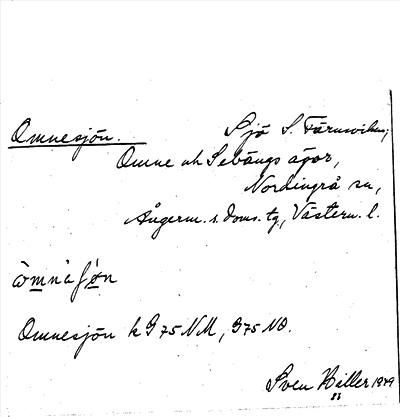 Omnesjön. Sjö S. Färnvikens,
Omne och Sebångs ägor,
Nordingrå sn,
Ångerm. s. doms. tg, Västern. l.
Omnesjön k G 75 NM, G 75 NO.
Sven Hiller 1949